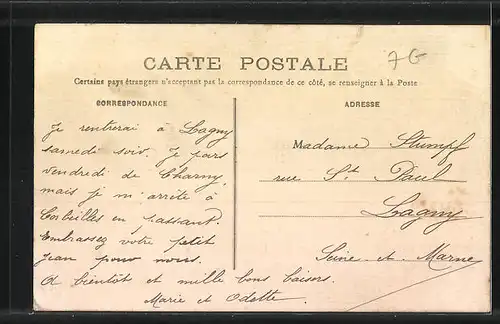 7G
CARTE POSTALE
Certains pays étrangers n'acceptant pas la correspondance de ce côté, se renseigner à la Poste
CORRESPONDANCE
Je rentrerai à Lagny
samedi soir. Je pars
vendredi de Charny,
mais je m'arrête à
Corbeilles en passant.
Embrassez votre petit
Jean pour nous.
A bientôt et mille bons baisers.
Marie et Odette.
ADRESSE
Madame Stumpf
rue St Paul
Lagny
Seine et Marne